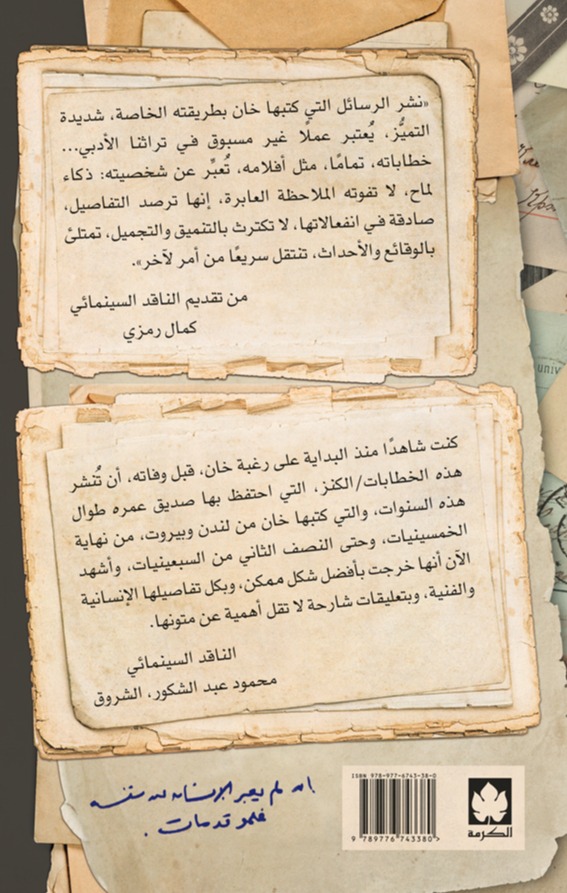 «نشر الرسائل التي كتبها خان بطريقته الخاصة، شديدة
التميُّز، يُعتبر عملًا غير مسبوق في تراثنا الأدبي...
خطاباته، تمامًا، مثل أفلامه، تُعبِّر عن شخصيته: ذكاء
لماح، لا تفوته الملاحظة العابرة، إنها ترصد التفاصيل،
صادقة في انفعالاتها، لا تكترث بالتنميق والتجميل، تمتلئ
بالوقائع والأحداث، تنتقل سريعًا من أمر لآخر».
من تقديم الناقد السينمائي
كمال رمزي
كنت شاهدًا منذ البداية على رغبة خان، قبل وفاته، أن تُنشر
هذه الخطابات/الكنز، التي احتفظ بها صديق عمره طوال
هذه السنوات، والتي كتبها خان من لندن وبيروت، من نهاية
الخمسينيات، وحتى النصف الثاني من السبعينيات، وأشهد
الآن أنها خرجت بأفضل شكل ممكن، وبكل تفاصيلها الإنسانية
والفنية، وبتعليقات شارحة لا تقل أهمية عن متونها.
الناقد السينمائي
محمود عبد الشكور، الشروق
إن لم يعبر الإنسان عن نفسه
فلهو قد مات.
ISBN 978-977-6743-38-0
9 789776 743380>
الكرمة
univ